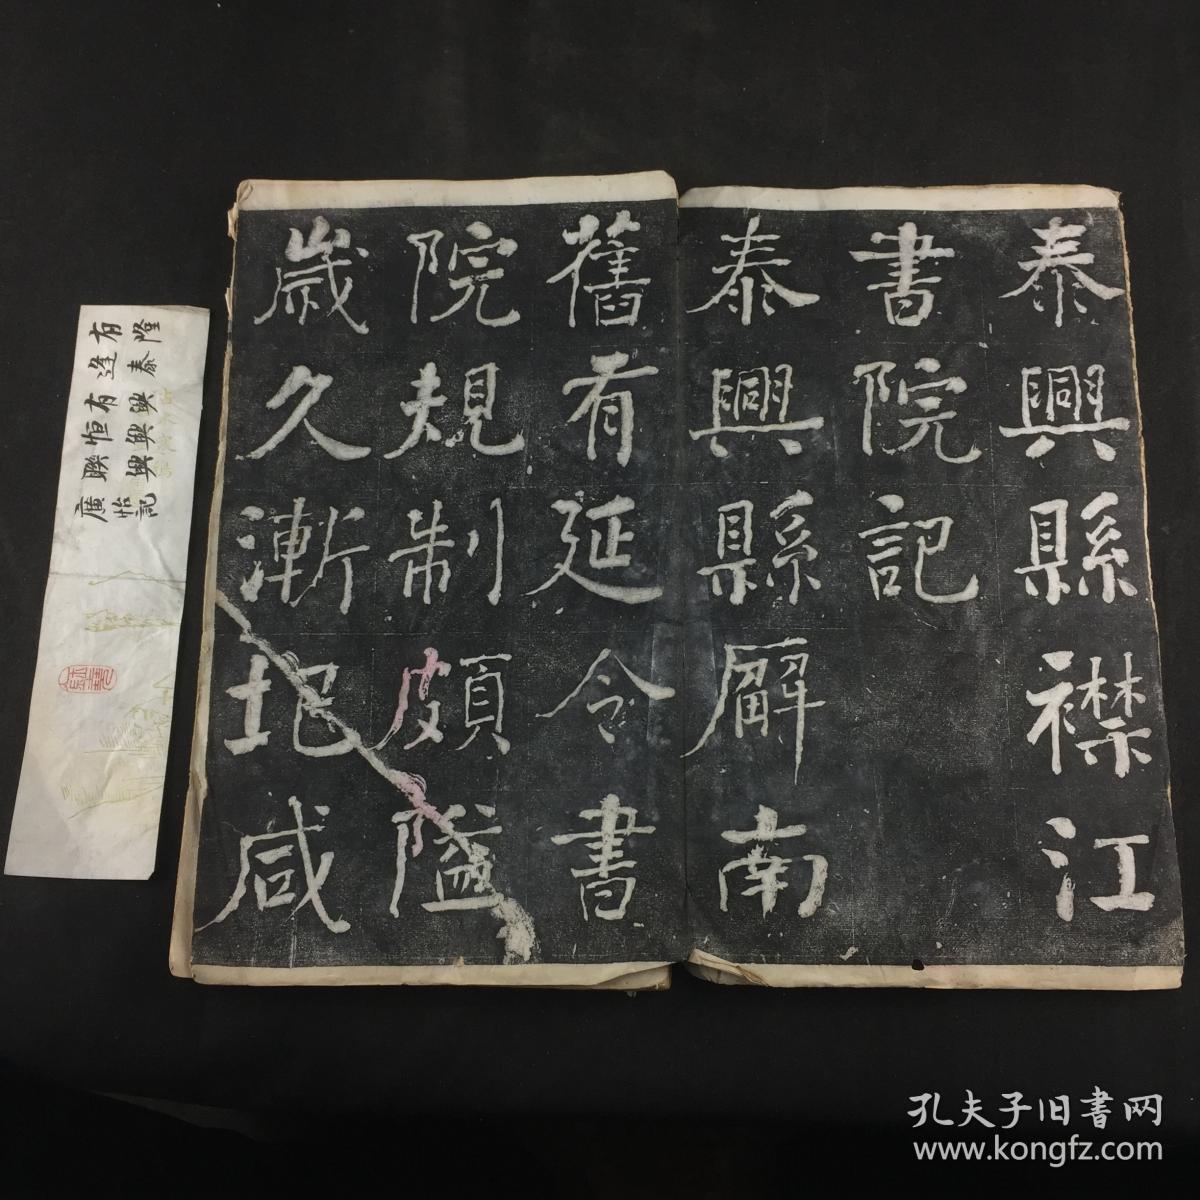 泰興縣襟江
書院記
泰興縣廨南
舊有延令書
院規制頗隘
歲久漸圮咸
隆泰興興興記
有逢有恒聯怡
廣
孔夫子旧書网
www.kongfz.com